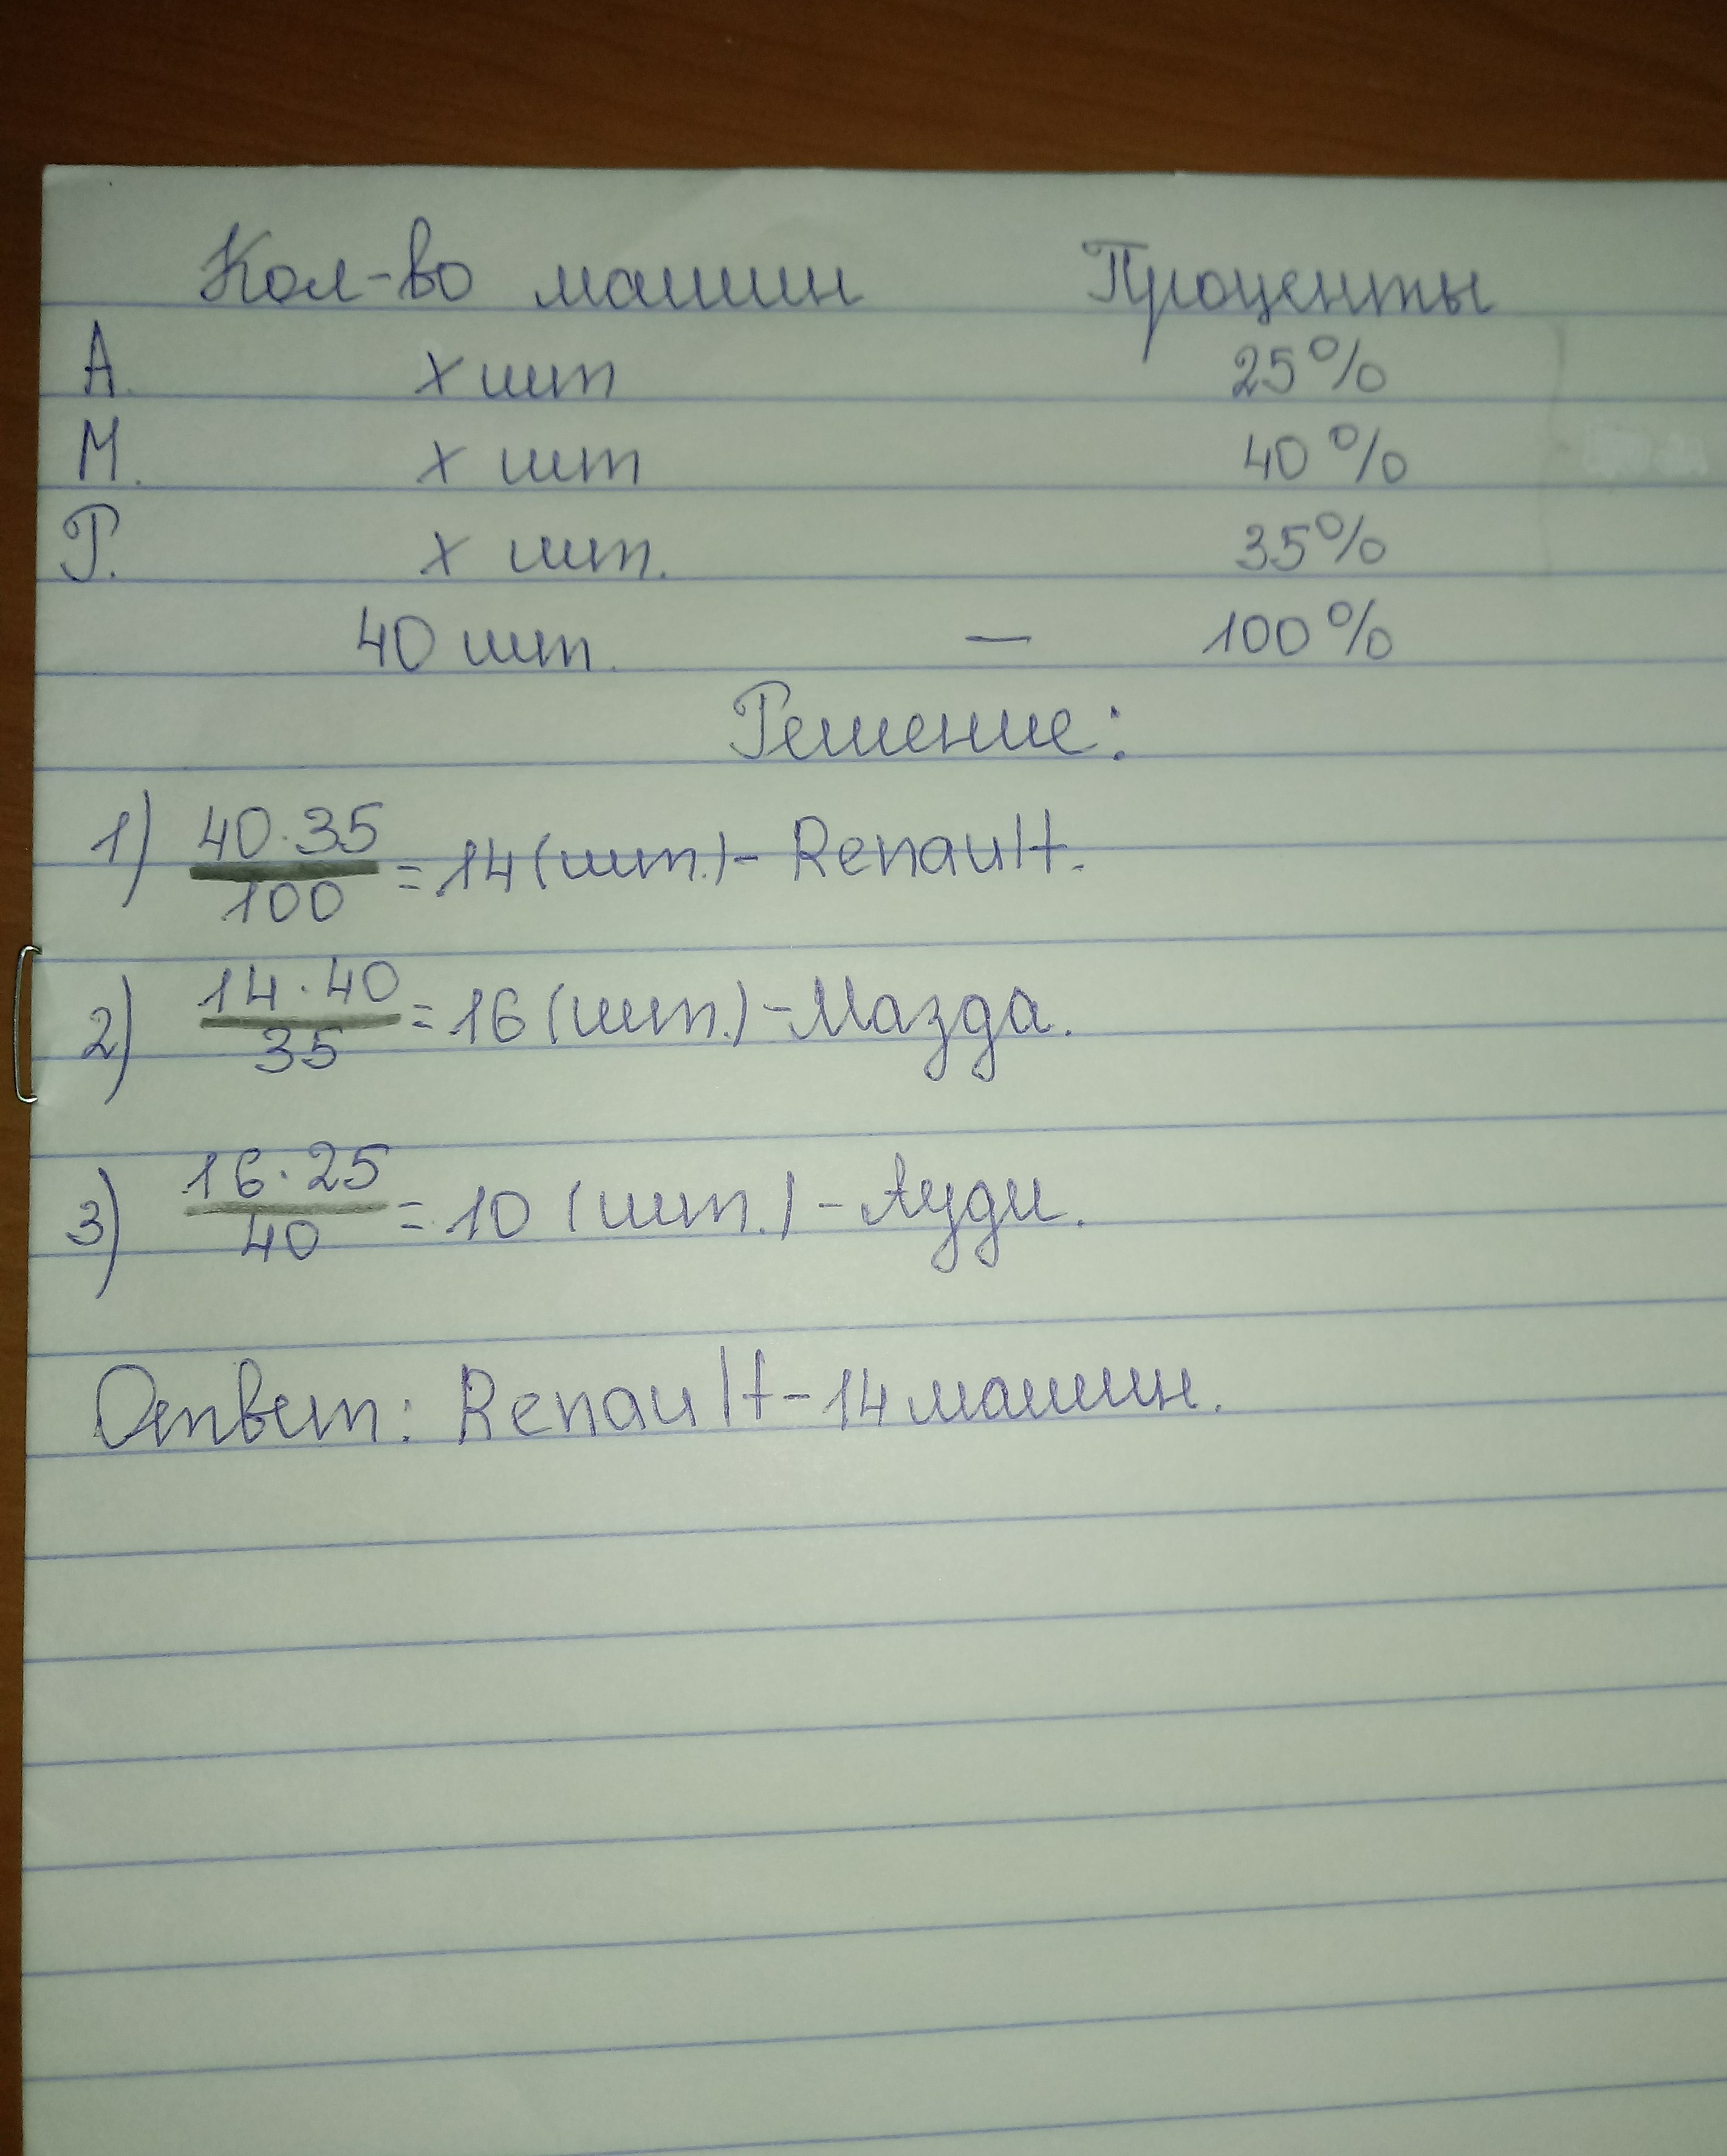 Кол-во машин Проценты
А. х шт 25%
М. х шт 40%
Р. х шт. 35%
40 шт. — 100%
Решение:
1) 40·35/100 = 14 (шт.) - Renault.
2) 14·40/35 = 16 (шт.) - Мазда.
3) 16·25/40 = 10 (шт.) - Ауди.
Ответ: Renault - 14 машин.